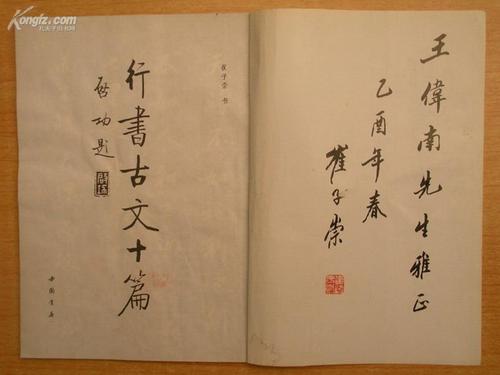 Kongfz.com
孔夫子旧书网
崔子崇 书
行書古文十篇
啓功题
中國書店
王偉南先生雅正
乙酉年春
崔子崇